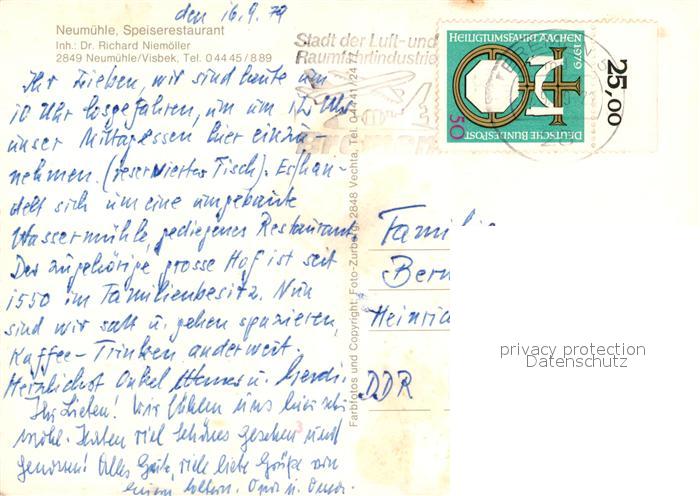 den 16.9.79
Neumühle, Speiserestaurant
Inh.: Dr. Richard Niemöller
2849 Neumühle/Visbek, Tel. 04445/889
Ihr Lieben, wir sind heute um
10 Uhr losgefahren, um um 12 Uhr
unser Mittagessen hier einzu-
nehmen. (reservierter Tisch). Es han-
delt sich um eine umgebaute
Wassermühle, gediegenes Restaurant.
Der zugehörige grosse Hof ist seit
1550 im Familienbesitz. Nun
sind wir satt u. gehen spazieren,
Kaffee-Trinken anderweit.
Herzlichst Onkel u. Gerdi.
Ihr Lieben! Wir fühlen uns hier sehr
wohl. Haben viel Schönes gesehen und
genossen! Alles Gute, viele liebe Grüße von
Euren Eltern. Oma u. Opa.
Farbfotos und Copyright: Foto-Zurborg, 2848 Vechta, Tel. 04441/2477
Stadt der Luft- und
Raumfahrtindustrie
Bremen
HEILIGTUMSFAHRT AACHEN 1979
DEUTSCHE BUNDESPOST
50
25,00
Famili
Bern
Heinric
DDR
privacy protection
Datenschutz